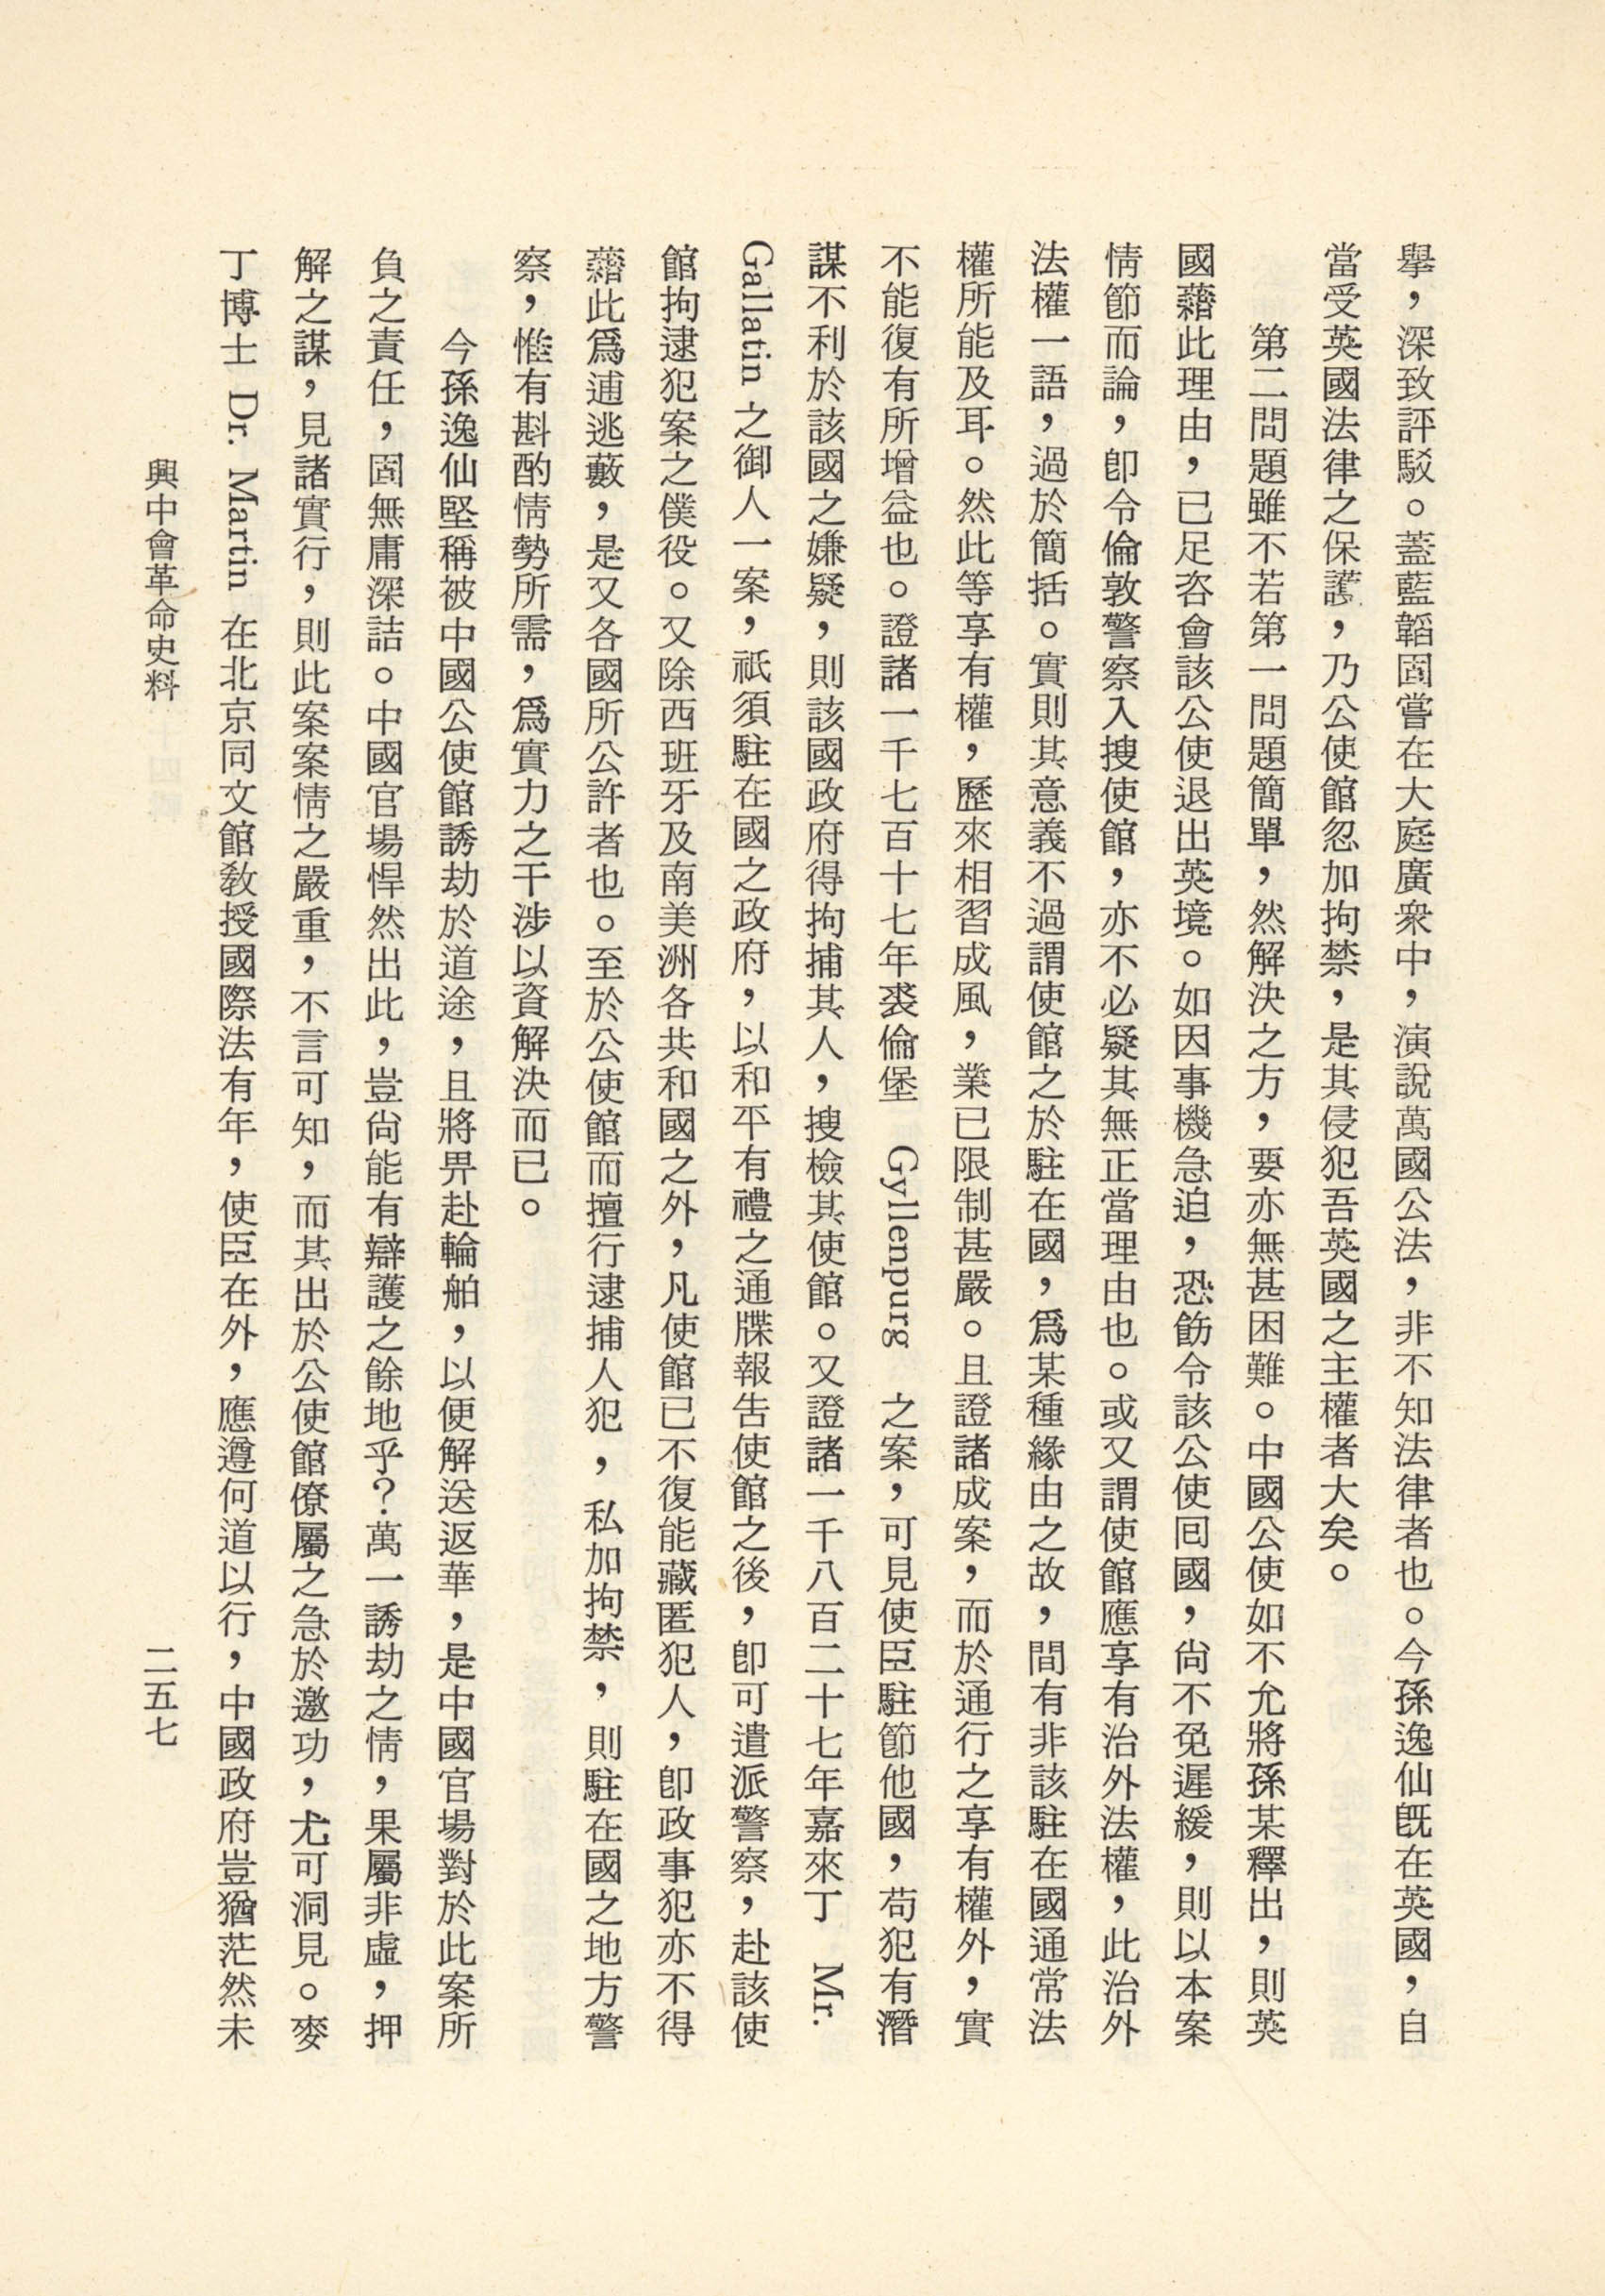 舉，深致評駁。蓋藍韜固嘗在大庭廣衆中，演說萬國公法，非不知法律者也。今孫逸仙旣在英國，自
當受英國法律之保護，乃公使館忽加拘禁，是其侵犯吾英國之主權者大矣。
第二問題雖不若第一問題簡單，然解決之方，要亦無甚困難。中國公使如不允將孫某釋出，則英
國藉此理由，已足咨會該公使退出英境。如因事機急迫，恐飭令該公使囘國，尙不免遲緩，則以本案
情節而論，卽令倫敦警察入搜使館，亦不必疑其無正當理由也。或又謂使館應享有治外法權，此治外
法權一語，過於簡括。實則其意義不過謂使館之於駐在國，爲某種緣由之故，間有非該駐在國通常法
權所能及耳。然此等享有權，歷來相習成風，業已限制甚嚴。且證諸成案，而於通行之享有權外，實
不能復有所增益也。證諸一千七百十七年裘倫堡 Gyllenpurg 之案，可見使臣駐節他國，苟犯有潛
謀不利於該國之嫌疑，則該國政府得拘捕其人，搜檢其使館。又證諸一千八百二十七年嘉來丁 Mr.
Gallatin 之御人一案，祇須駐在國之政府，以和平有禮之通牒報告使館之後，卽可遣派警察，赴該使
館拘逮犯案之僕役。又除西班牙及南美洲各共和國之外，凡使館已不復能藏匿犯人，卽政事犯亦不得
藉此爲逋逃藪，是又各國所公許者也。至於公使館而擅行逮捕人犯，私加拘禁，則駐在國之地方警
察，惟有斟酌情勢所需，爲實力之干涉以資解決而已。
今孫逸仙堅稱被中國公使館誘劫於道途，且將畀赴輪舶，以便解送返華，是中國官場對於此案所
負之責任，固無庸深詰。中國官場悍然出此，豈尙能有辯護之餘地乎？萬一誘劫之情，果屬非虛，押
解之謀，見諸實行，則此案案情之嚴重，不言可知，而其出於公使館僚屬之急於邀功，尤可洞見。麥
丁博士 Dr. Martin 在北京同文館敎授國際法有年，使臣在外，應遵何道以行，中國政府豈猶茫然未
興中會革命史料
二五七